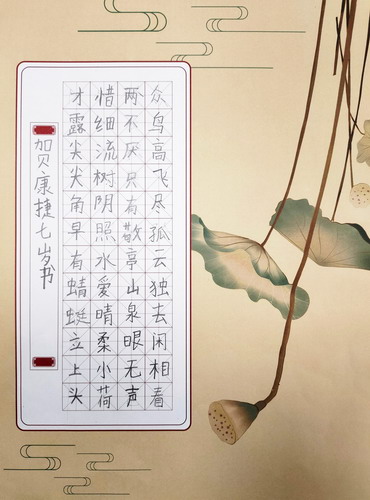 众鸟高飞尽孤云独去闲相看
两不厌只有敬亭山泉眼无声
惜细流树阴照水爱晴柔小荷
才露尖尖角早有蜻蜓立上头
贺康捷七岁书